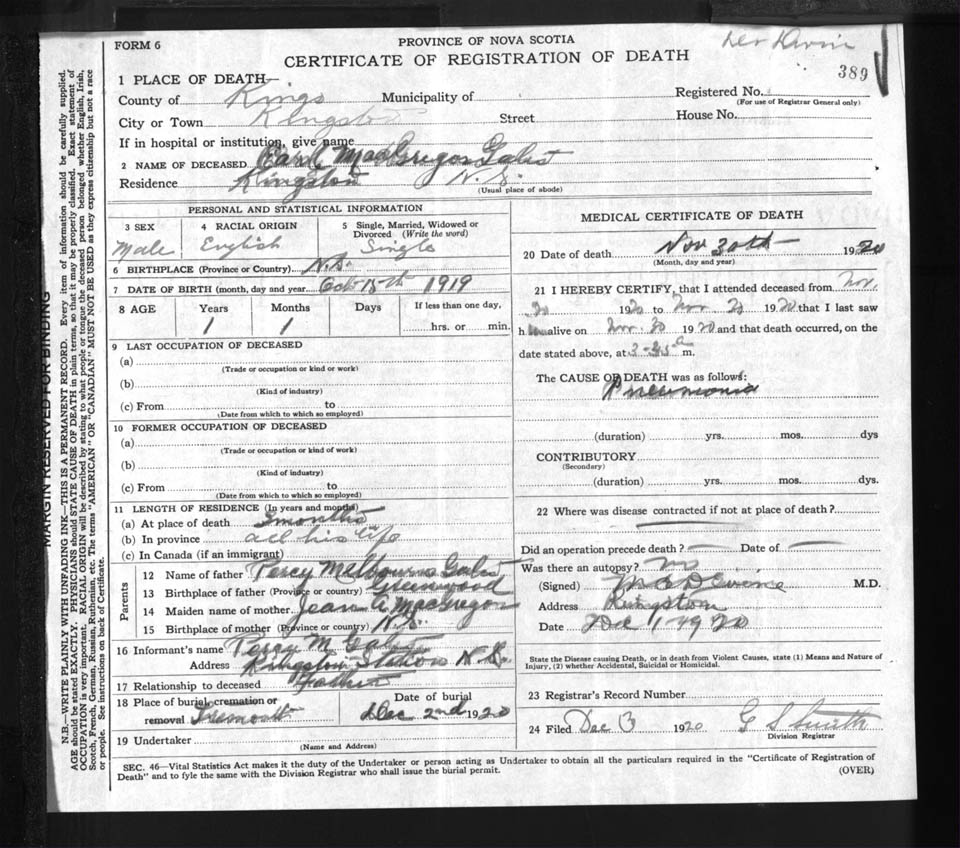 FORM 6
PROVINCE OF NOVA SCOTIA
CERTIFICATE OF REGISTRATION OF DEATH
389
1 PLACE OF DEATH—
County of Kings Municipality of Registered No.
(For use of Registrar General only)
City or Town Kingston Street House No.
If in hospital or institution, give name
2 NAME OF DECEASED Earl MacGregor
Residence Kingston N.S.
(Usual place of abode)
PERSONAL AND STATISTICAL INFORMATION
3 SEX Male
4 RACIAL ORIGIN English
5 Single, Married, Widowed or Divorced (Write the word) Single
6 BIRTHPLACE (Province or Country) N.S.
7 DATE OF BIRTH (month, day and year) Oct 15th 1919
8 AGE Years Months Days If less than one day,
1 1 hrs. or min.
9 LAST OCCUPATION OF DECEASED
(a)
(Trade or occupation or kind or work)
(b)
(Kind of industry)
(c) From to
(Date from which to which so employed)
10 FORMER OCCUPATION OF DECEASED
(a)
(Trade or occupation or kind of work)
(b)
(Kind of industry)
(c) From to
(Date from which to which so employed)
11 LENGTH OF RESIDENCE (In years and months)
(a) At place of death months
(b) In province all his life
(c) In Canada (if an immigrant)
Parents
12 Name of father Percy Melbourne
13 Birthplace of father (Province or country) Greenwood
14 Maiden name of mother Jean A MacGregor
15 Birthplace of mother (Province or country) N.S.
16 Informant's name Percy M.
Address Kingston Station N.S.
17 Relationship to deceased Father
18 Place of burial, cremation or removal Tremont
Date of burial Dec 2nd 1920
19 Undertaker
(Name and Address)
MEDICAL CERTIFICATE OF DEATH
20 Date of death Nov 30th 1920
(Month, day and year)
21 I HEREBY CERTIFY, that I attended deceased from Nov.
1920 to Nov 1920 that I last saw
h alive on Nov. 30 1920 and that death occurred, on the
date stated above, at a m.
The CAUSE OF DEATH was as follows:
Pneumonia
(duration) yrs. mos. dys
CONTRIBUTORY
(Secondary)
(duration) yrs. mos. dys.
22 Where was disease contracted if not at place of death?
Did an operation precede death? Date of
Was there an autopsy? no
(Signed) M.D.
Address Kingston
Date Dec 1 1920
State the Disease causing Death, or in death from Violent Causes, state (1) Means and Nature of
Injury, (2) whether Accidental, Suicidal or Homicidal.
23 Registrar's Record Number
24 Filed Dec 3 1920 G S Smith
Division Registrar
SEC. 46—Vital Statistics Act makes it the duty of the Undertaker or person acting as Undertaker to obtain all the particulars required in the "Certificate of Registration of
Death" and to fyle the same with the Division Registrar who shall issue the burial permit.
(OVER)
MARGIN RESERVED FOR BINDING
N.B.—WRITE PLAINLY WITH UNFADING INK—THIS IS A PERMANENT RECORD. Every item of information should be carefully supplied.
AGE should be stated EXACTLY. PHYSICIANS should STATE CAUSE OF DEATH in plain terms, so that it may be properly classified. Exact statement of
OCCUPATION is very important. RACIAL ORIGIN will be described by stating to what people or tongue the deceased person belonged whether English, Irish,
Scotch, French, German, Russian, Ruthenian, etc. The terms "AMERICAN" OR "CANADIAN" MUST NOT BE USED as they express citizenship but not a race
or people. See instructions on back of Certificate.